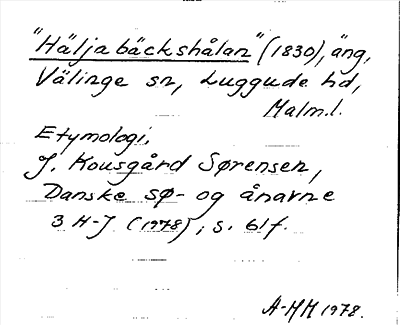 "Häljabäckshålan" (1830), äng,
Välinge sn, Luggude hd,
Malm.l.
Etymologi.
J. Kousgård Sørensen,
Danske sø- og ånavne
3 H-J (1978), s. 61f.
A-MH 1978.